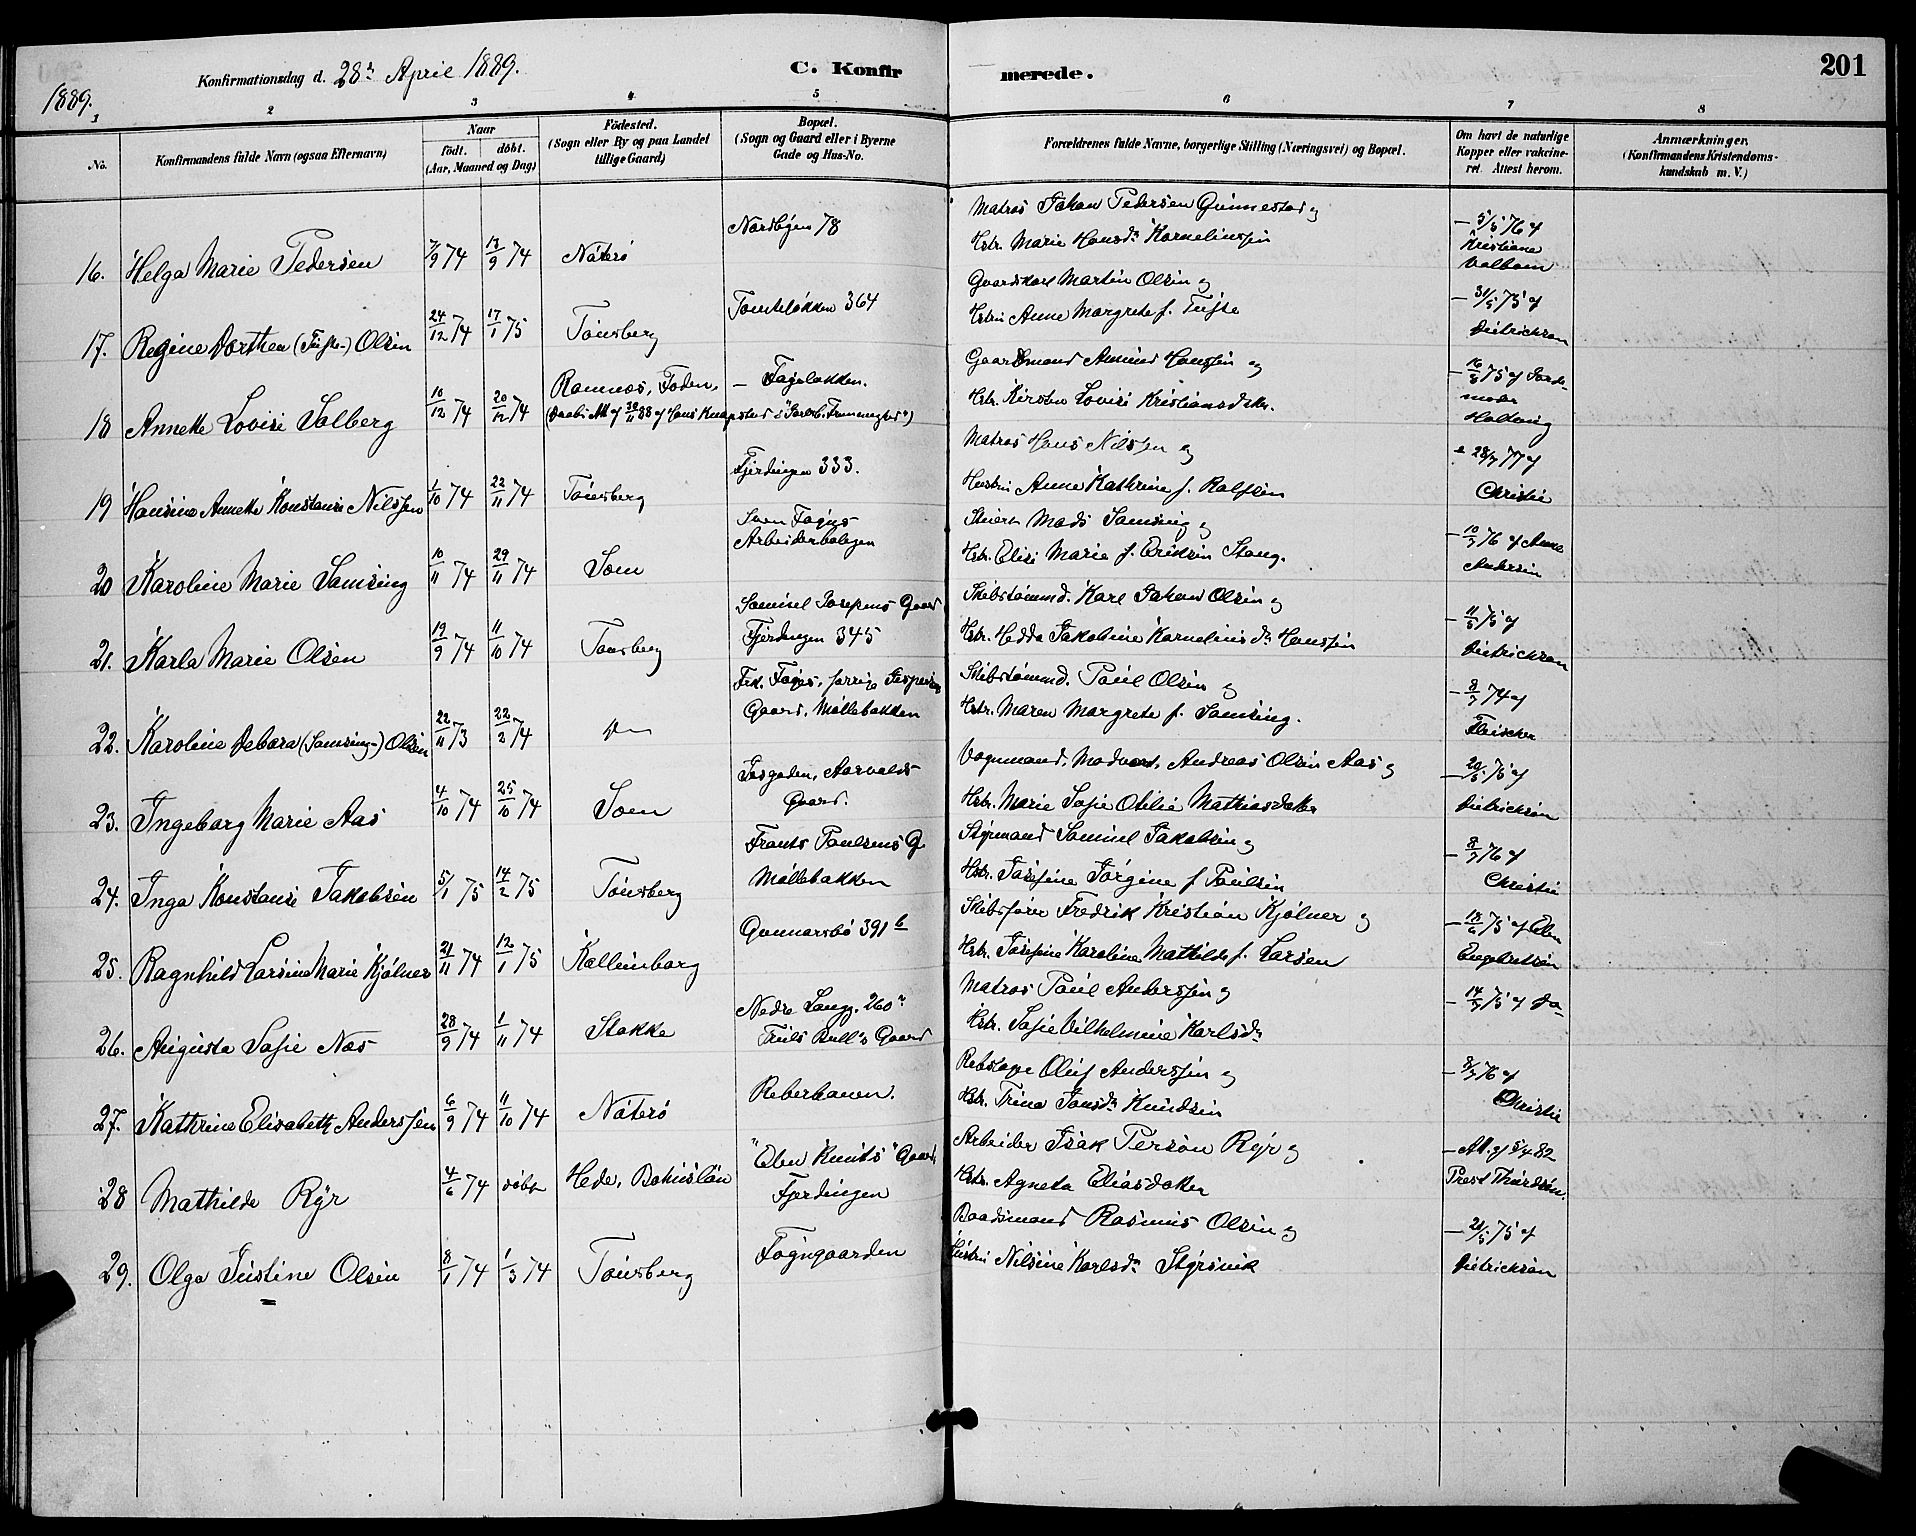 201
1889.
Konfirmationsdag d. 28de April 1889.
C. Konfirmerede.
1 2 3 4 5 6 7 8
No.
Konfirmandens fulde Navn (ogsaa Efternavn)
Naar
födt. döbt.
(Aar, Maaned og Dag)
Födested.
(Sogn eller By og paa Landet
tillige Gaard)
Bopæl.
(Sogn og Gaard eller i Byerne
Gade og Hus-No.
Forældrenes fulde Navne, borgerlige Stilling (Næringsvei) og Bopæl.
Om havt de naturlige
Kopper eller vakcine-
ret. Attest herom.
Anmærkninger.
(Konfirmandens Kristendoms-
kundskab m. V.)
16. Helga Marie Pedersen 7/9 74 13/9 74 Nøterø Nordbyen 78
Matros Johan Pedersen Gunnestad og
Hstr. Marie Hansdr. Kornelinssen
— 5/8 76 af
Kristiane
Valbom
17. Regine Dorthea (Tufte-) Olsen 24/12 74 17/1 75 Tönsberg Tomteløkken 364
Gaardskarl Martin Olsen og
Hstru Anne Margrete f. Tufte
— 31/5 75 af
Dietrichson
18 Annette Lovise Solberg 10/12 74 20/12 74 Ramnæs, Foden. — Fogeløkken.
(Daabs Att. af 30/11 88 af Hans Knapstad s "Særb. Frimenighed")
Gaardmand Amund Hanssen og
Hstr. Kirsten Lovise Kristiansdatr.
— 16/8 75 af Jorde-
moder
Hollvig
19 Hansine Annette Konstanse Nilssen 1/10 74 22/11 74 Tönsberg Fjerdingen 333.
Matros Hans Nilssen og
Hustru Anne Kathrine f. Rolfsen
= 28/7 77 af
Christie
20 Karoline Marie Samsing 10/11 74 29/11 74 Sem Sven Foyns
Arbeiderboligen
Mads Samsing og
Hstr. Elise Marie f. Eriksen Stang.
— 10/7 76 af Anne
Andersen
21. Karla Marie Olsen 19/9 74 11/10 74 Tönsberg Samuel Josefsens Gaard
Fjerdingen 345
Skibstömmd. Karl Johan Olsen og
Hstr. Hedda Jakobine Kornelius dr. Hanssen
— 11/6 75 af
Dietrichson
22. Karoline Debora (Samsing-) Olsen 22/11 73 22/2 74 Do Frk. Foyns, forrige Jespersens
Gaard, Møllebakken
Skibstömmd. Paul Olsen og
Hstr. Maren Margrete f. Samsing.
— 8/7 74 af
Fleischer
23. Ingeborg Marie Aas 4/10 74 25/10 74 Sem Aarvolds
Gaard.
Vognmand, Andreas Olsen Aas og
Hstr. Marie Sofie Otilie Mathiasdatter
— 20/5 75 af
Dietrichson
24. Inga Konstanse Jakobsen 5/1 75 14/2 75 Tönsberg Frants Paulsens G.
Møllebakken
Styrmand Samuel Jakobsen og
Hstr. Josefine Jörgine f Paulsen
— 8/7 76 af
Christie
25. Ragnhild Larsine Marie Kjølner 21/11 74 12/1 75 Kallundborg Gunnarsbö 391 b
Skibsfører Fredrik Kristian Kjølner og
Hstr. Josefine Karoline Mathilde f. Larsen
— 18/6 75 af Elen
Engebretsen
26. Augusta Sofie Næs 28/9 74 1/11 74 Stokke Nedre Langg. 260
Truls Bull's Gaard
Matros Paul Anderssen og
Hstr. Sofie Vilhelmine Karlsdr
— 14/7 75 af Do
27. Kathrine Elisabeth Anderssen 6/9 74 11/10 74 Nøterø Reberbanen.
Rebslager Oluf Anderssen og
Hstr. Trine Jansdr. Knudsen
— 8/7 76 af
Christie
28 Mathilde Ryr 4/6 74 döbt Hede, Bohuslän "Elen Knuts" Gaard,
Fjerdingen
Arbeider Isak Person Ryr og
Hstr. Agneta Eliasdotter
— Att. af 5/4 82
Prest Thurdsen.
29. Olga Justine Olsen 8/1 74 1/3 74 Tönsberg Fogngaarden
Baadsmand Rasmus Olsen og
Hustru Nilsine Karlsdr Styrsvik
— 21/5 75 af
Dietrichson